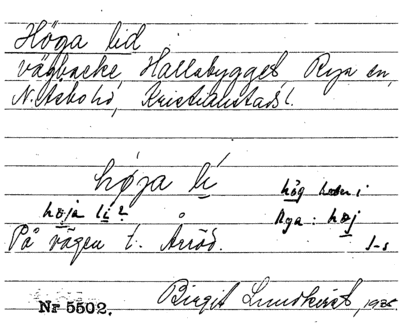 Höga lid
vägbacke, Hallabygget Rya sn,
N. Åsbo hd, Kristianstads l.
høja lí
hæja li?
hög som i
Rya: hæj
På vägen t. Årröd.
Nr 5502.
Birgit Lundkvist, 1935.